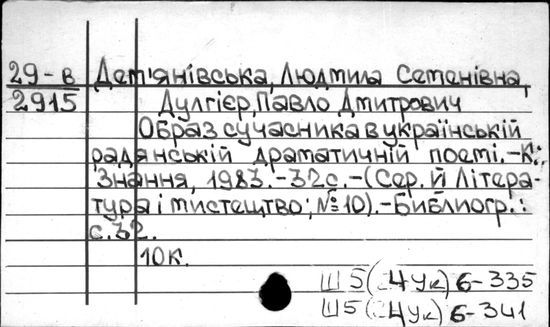 29-в Дем'янівська, Людмила Семенівна,
2915 Дулгієр, Павло Дмитрович
Образ сучасника в українській
радянській драматичній поемі.-К.:
Знання, 1983.-32с.-(Сер. Й Літера-
тура і мистецтво; №10).-Библиогр.:
с.32.
10к.
Ш5(=4Ук)6-335
Ш5(=4Ук)6-341